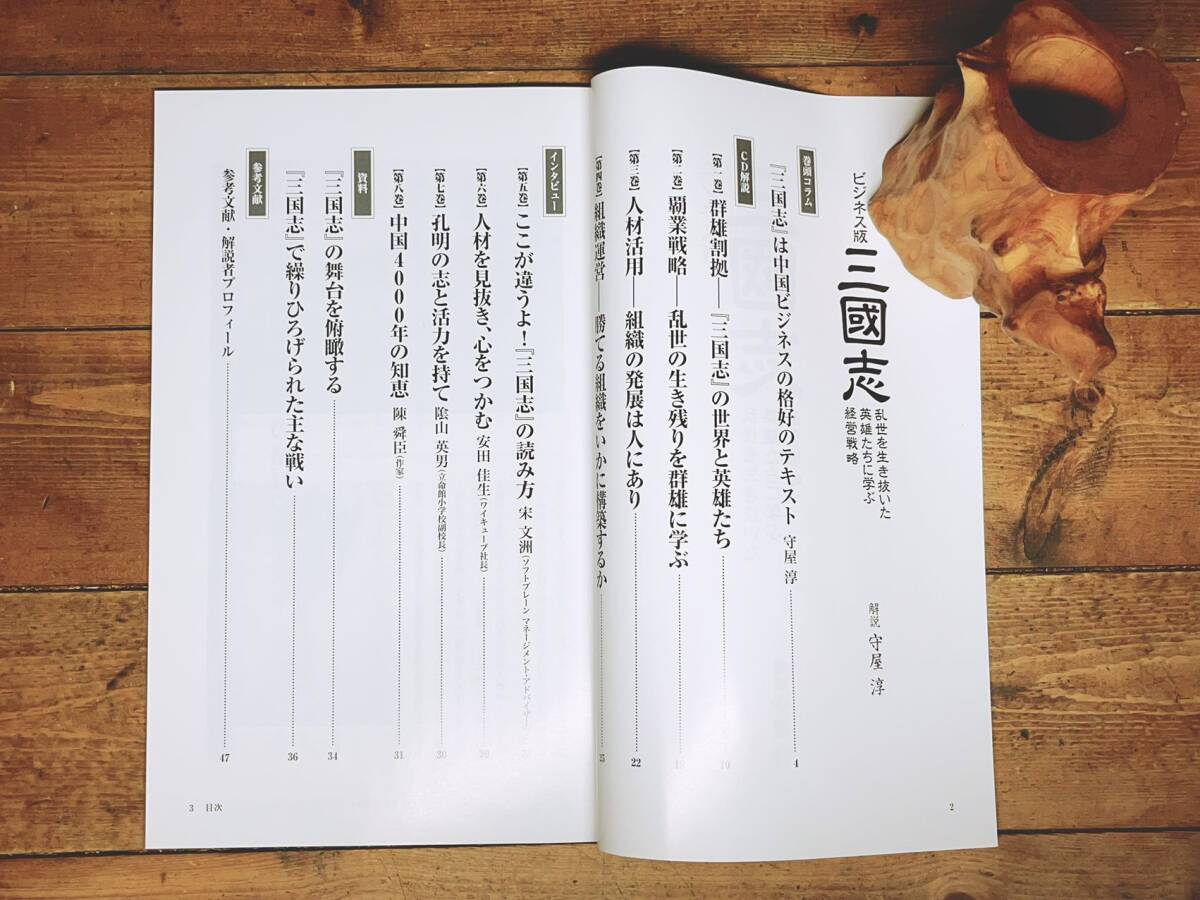 ビジネス版
三國志
乱世を生き抜いた
英雄たちに学ぶ
経営戦略
解説 守屋 淳
巻頭コラム
『三国志』は中国ビジネスの格好のテキスト 守屋 淳 4
CD解説
【第一巻】群雄割拠――『三国志』の世界と英雄たち 10
【第二巻】覇業戦略――乱世の生き残りを群雄に学ぶ
【第三巻】人材活用――組織の発展は人にあり 22
【第四巻】組織運営――勝てる組織をいかに構築するか 25
インタビュー
【第五巻】ここが違うよ!『三国志』の読み方 宋 文洲(ソフトブレーン マネージメント・アドバイザー)
【第六巻】人材を見抜き、心をつかむ 安田 佳生(ワイキューブ社長)
【第七巻】孔明の志と活力を持て 陰山 英男(立命館小学校副校長) 30
【第八巻】中国4000年の知恵 陳 舜臣(作家) 31
資料
『三国志』の舞台を俯瞰する 34
『三国志』で繰りひろげられた主な戦い 36
参考文献
参考文献・解説者プロフィール 47
2
3 目次